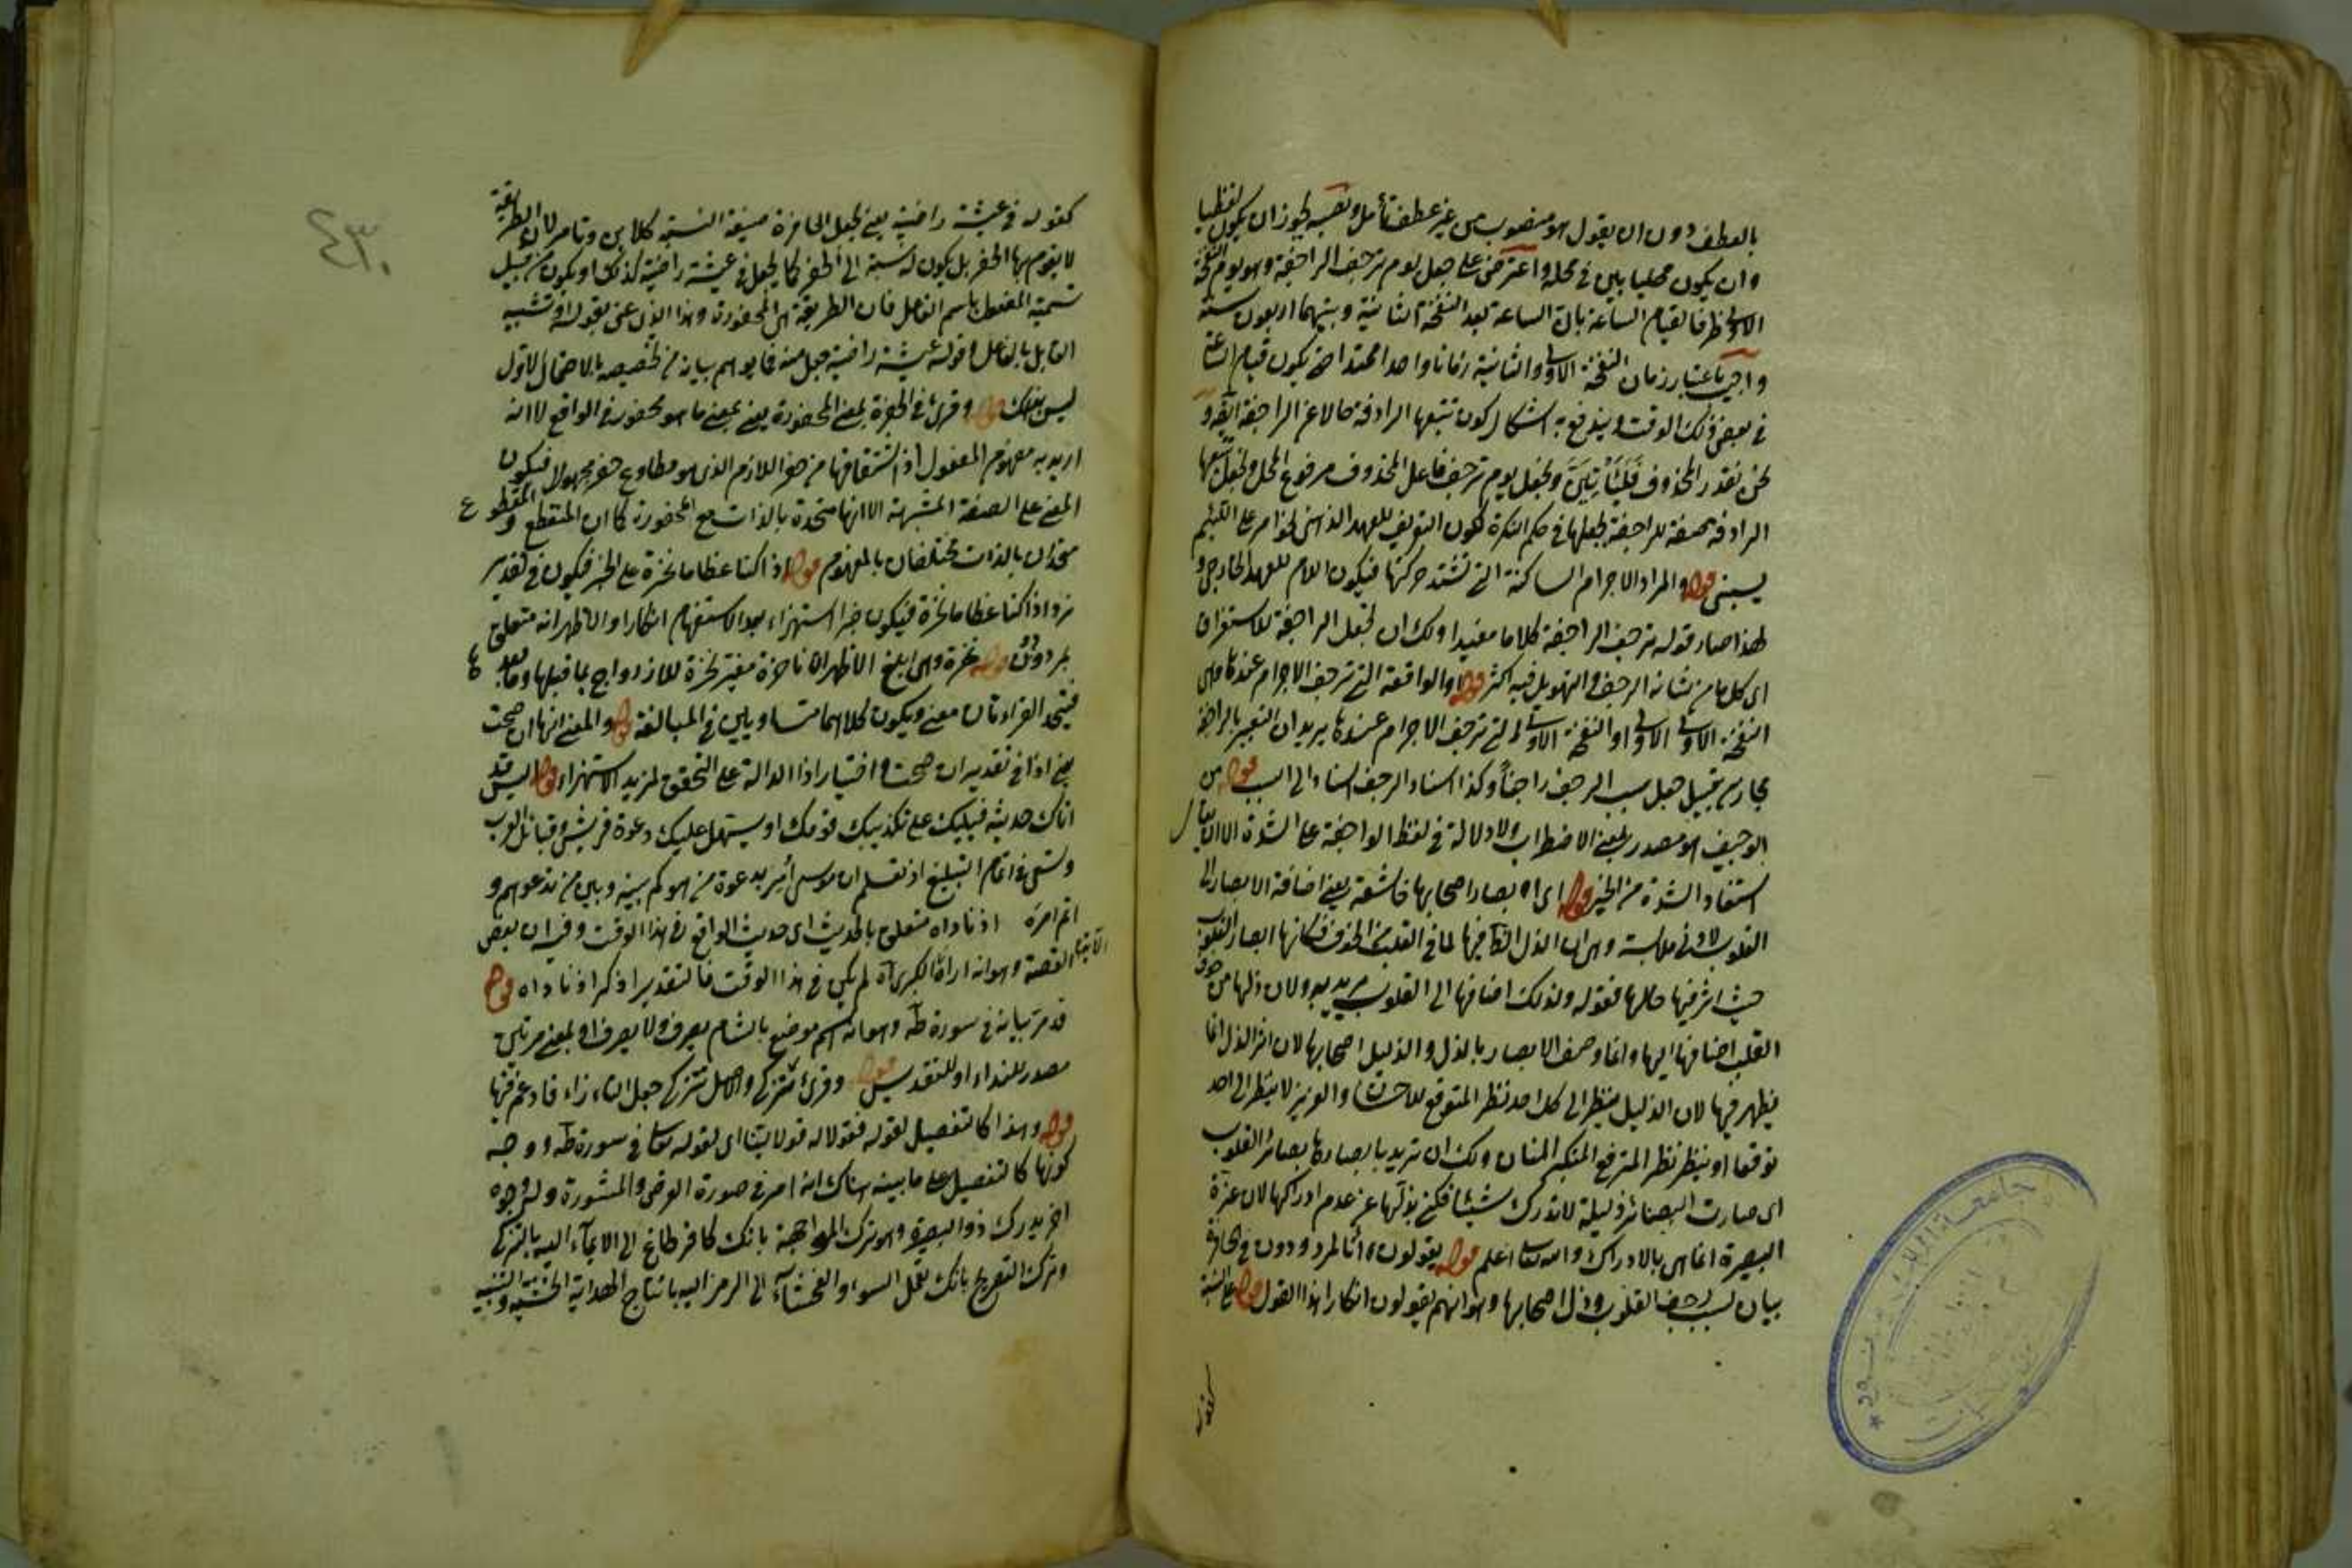 بالعطف دون ان يقول هو منصوب من غير عطف تأمل ونصبه يجوز ان يكون لفظيا
وان يكون محليا بان في محله واعترض على جعل يوم ترجف الراجفة وهو يوم النفخة
الاولى ظرفا لقيام الساعة بان الساعة بعد النفخة الثانية وبينهما اربعون سنة
واجيب باعتبار زمان النفخة الاولى والثانية زمانا واحدا ممتدا حتى يكون قيام الساعة
في بعض ذلك الوقت ويندفع به اشكال كون تتبعها الرادفة حالا عن الراجفة
نحن نقدر المحذوف ونجعل يوم ترجف فاعل المحذوف مرفوع المحل ونجعل تتبعها
الرادفة صفة للراجفة بجعلها في حكم النكرة لكون التعريف للعهد الذهني على اللئيم
يسبني قوله والمراد الاجرام الساكنة التي تشتد حركتها فيكون اللام للعهد الخارجي و
لهذا صار قوله ترجف الراجفة كلاما مفيدا ولك ان تجعل الراجفة للاستغراق
اى كل ما من شانه الرجف والتهويل فيه اكثر قوله او الواقعة التي ترجف الاجرام عندها وهى
النفخة الاولى او النفخة الاولى التي ترجف الاجرام عندها يريد ان التعبير بالراجفة
مجاز من قبيل جعل سبب الرجف راجفا وكذا اسناد الرجف اسناد الى السبب قوله من
الوجيف هو مصدر بمعنى الاضطراب ولا دلالة في لفظ الواجفة على الشدة الا ان يقال
استفاد الشدة من الخبر قوله اى ابصار اصحابها خاشعة يعنى اضافة الابصار الى
القلوب لادنى ملابسة وهى ان الذل فيها لما في القلب من الخوف فكانها ابصار القلوب
حيث اثر فيها حالها فقوله ولذلك اضافها الى القلوب يريد به ولان ذلها من خوف
القلب اضافها اليها وانما وصف الابصار بالذل والذليل اصحابها لان اثر الذل انما
يظهر فيها لان الذليل ينظر الى كل احد نظر المتوقع للاحسان والعزيز لا ينظر الى احد
توقعا او ينظر نظر المترفع المتكبر المنان ولك ان تريد بابصارها بصائر القلوب
اى صارت البصائر ذليلة لا تدرك شيئا فكنى بذلها عن عدم ادراكها لان عزة
البصيرة انما هى بالادراك والله تعالى اعلم قوله يقولون ائنا لمردودون في الحافرة
بيان لسبب رجف القلوب وذل اصحابها وهو انهم يقولون انكارا هذا القول قوله على النسبة
كقوله
٤٣٠
كقوله في عيشة راضية يعنى بجعل الحافرة صيغة النسبة كلابن وتامر لان الطريقة
لا يقوم بها الحفر بل يكون له نسبة الى الحفر كما يجعل في عيشة راضية كذلك او يكون من قبيل
تسمية المفعول باسم الفاعل فان الطريقة هى المحفورة وهذا الذى عنى بقوله او تشبيه
القابل بالفاعل وقوله عيشة راضية جعل منه فما يوهم بيانه من تخصيصه بالاحتمال الاول
ليس بذلك قوله وقرئ في الحفرة بمعنى المحفورة يعنى بمعنى ما هو محفور في الواقع لا انه
اريد به مفهوم المفعول اذ اشتقاقها من حفر اللازم الذى هو مطاوع حفر مجهولا فيكون
المعنى على الصفة المشبهة الا انها متحدة بالذات مع المحفورة كما ان المنقطع والمقطوع
متحدان بالذات مختلفان بالمفهوم قوله ائذا كنا عظاما نخرة على الخبر فيكون في تقدير
نرد اذا كنا عظاما نخرة فيكون خبرا استهزاء بعد الاستفهام انكارا والاظهر انه متعلق
بمردودون قوله نخرة وهى ابلغ الاظهر ان ناخرة مغير نخرة للازدواج بما قبلها وما بعدها
فيتحد القراءتان معنى ويكون كلاهما متساويين في المبالغة قوله والمعنى انها ان صحت
يعنى اذا في تقدير ان صحت واختيار اذا الدالة على التحقق لمزيد الاستهزاء قوله اليس قد
اتاك حديثه فيسليك على تكذيب قومك او يستهل عليك دعوة قريش وقبائل العرب
في اتمام التبليغ اذ تعلم ان موسى امر بدعوة من هو كم بينه وبين من تدعوهم و
اتم امره اذ ناداه متعلق بالحديث اى حديث الواقع في هذا الوقت وفيه ان بعض
القصة وهو انه اراه الآية الكبرى لم يكن في هذا الوقت فالتقدير اذكر اذ ناداه قوله
قد مر بيانه في سورة طه وهو انه اسم موضع بالشام يصرف ولا يصرف او بمعنى مرتين
مصدر للنداء او للتقديس قوله وقرئ تتزكى والاصل تتزكى جعل التاء زاء فادغم فيها
قوله وهذا كالتفصيل لقوله فقولا له قولا لينا اى لقوله تعالى في سورة طه ووجه
كونها كالتفصيل على ما بينه هناك انه امر في صورة العرض والمشورة ولوجوه
اخر يدرك ذو البصيرة وهو ترك المواجهة بانك كافر طاغ الى الايماء اليه بالتزكى
وترك التصريح بانك تفعل السوء والفحشاء الى الرمز اليه بانتاج الهداية الخشية